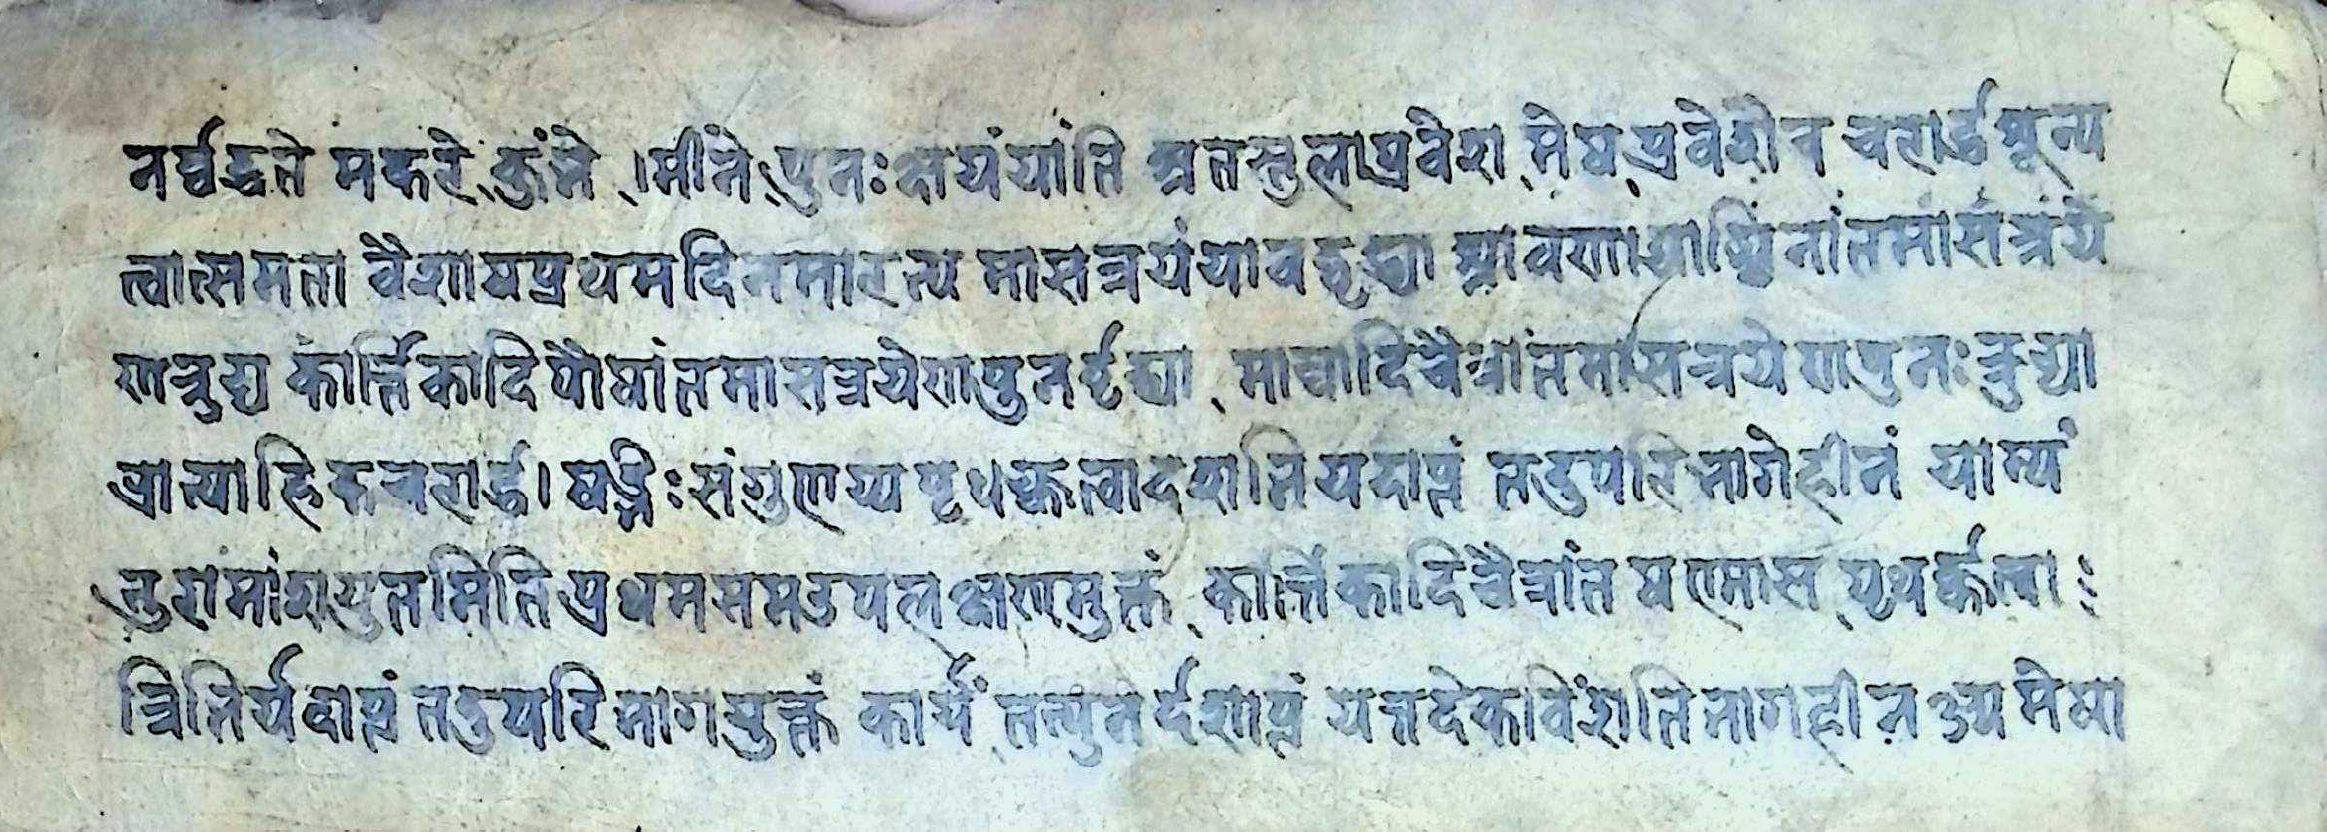 नर्व्वद्धते मकरे कुंभे । मीने पुनः क्षयं यांति अतस्तुलाप्रवेश मेषप्रवेशे च चरार्द्धशून्य
त्वात्समता वैशाषप्रथमदिनमारभ्य मासत्रयं यावद्वृद्ध्या श्रावणाद्याश्विनांतमासत्रये
ण त्रुट्य कार्त्तिकादिपौषांतमासत्रयेण पुनर्वृद्ध्या माघादिचैत्रांतमासत्रयेण पुनः त्रुट्या
प्रात्याह्निकचरार्द्ध । षड्भिः संगुण्य पृथक्कृत्वा दशभिर्यदाप्तं तदुपरिभागे हीनं याम्यं
तुरामांशयुतमिति प्रथमसप्तउपलक्षणमुक्तं कार्त्तिकादिचैत्रांत षण्मास पृथक्कृत्वा
त्रिभिर्यदाप्तं तदुपरिभागयुक्तं कार्यं तत्पुनर्दशाप्तं यत्तदेकविंशतिभागहीन मेषा